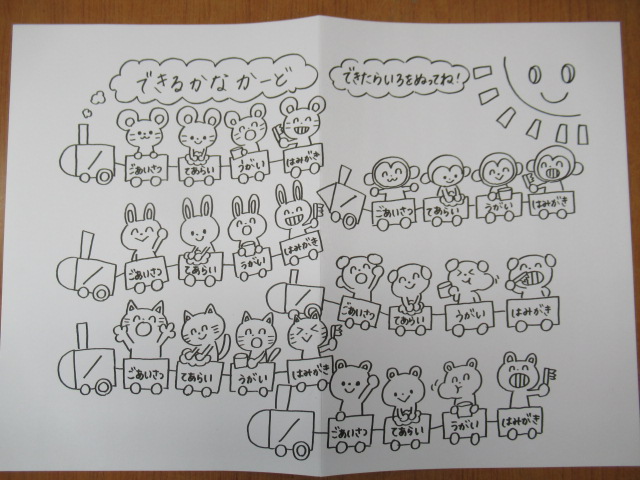 できるかなかーど
できたらいろをぬってね!
ごあいさつ てあらい うがい はみがき
ごあいさつ てあらい うがい はみがき
ごあいさつ てあらい うがい はみがき
ごあいさつ てあらい うがい はみがき
ごあいさつ てあらい うがい はみがき
ごあいさつ てあらい うがい はみがき
ごあいさつ てあらい うがい はみがき